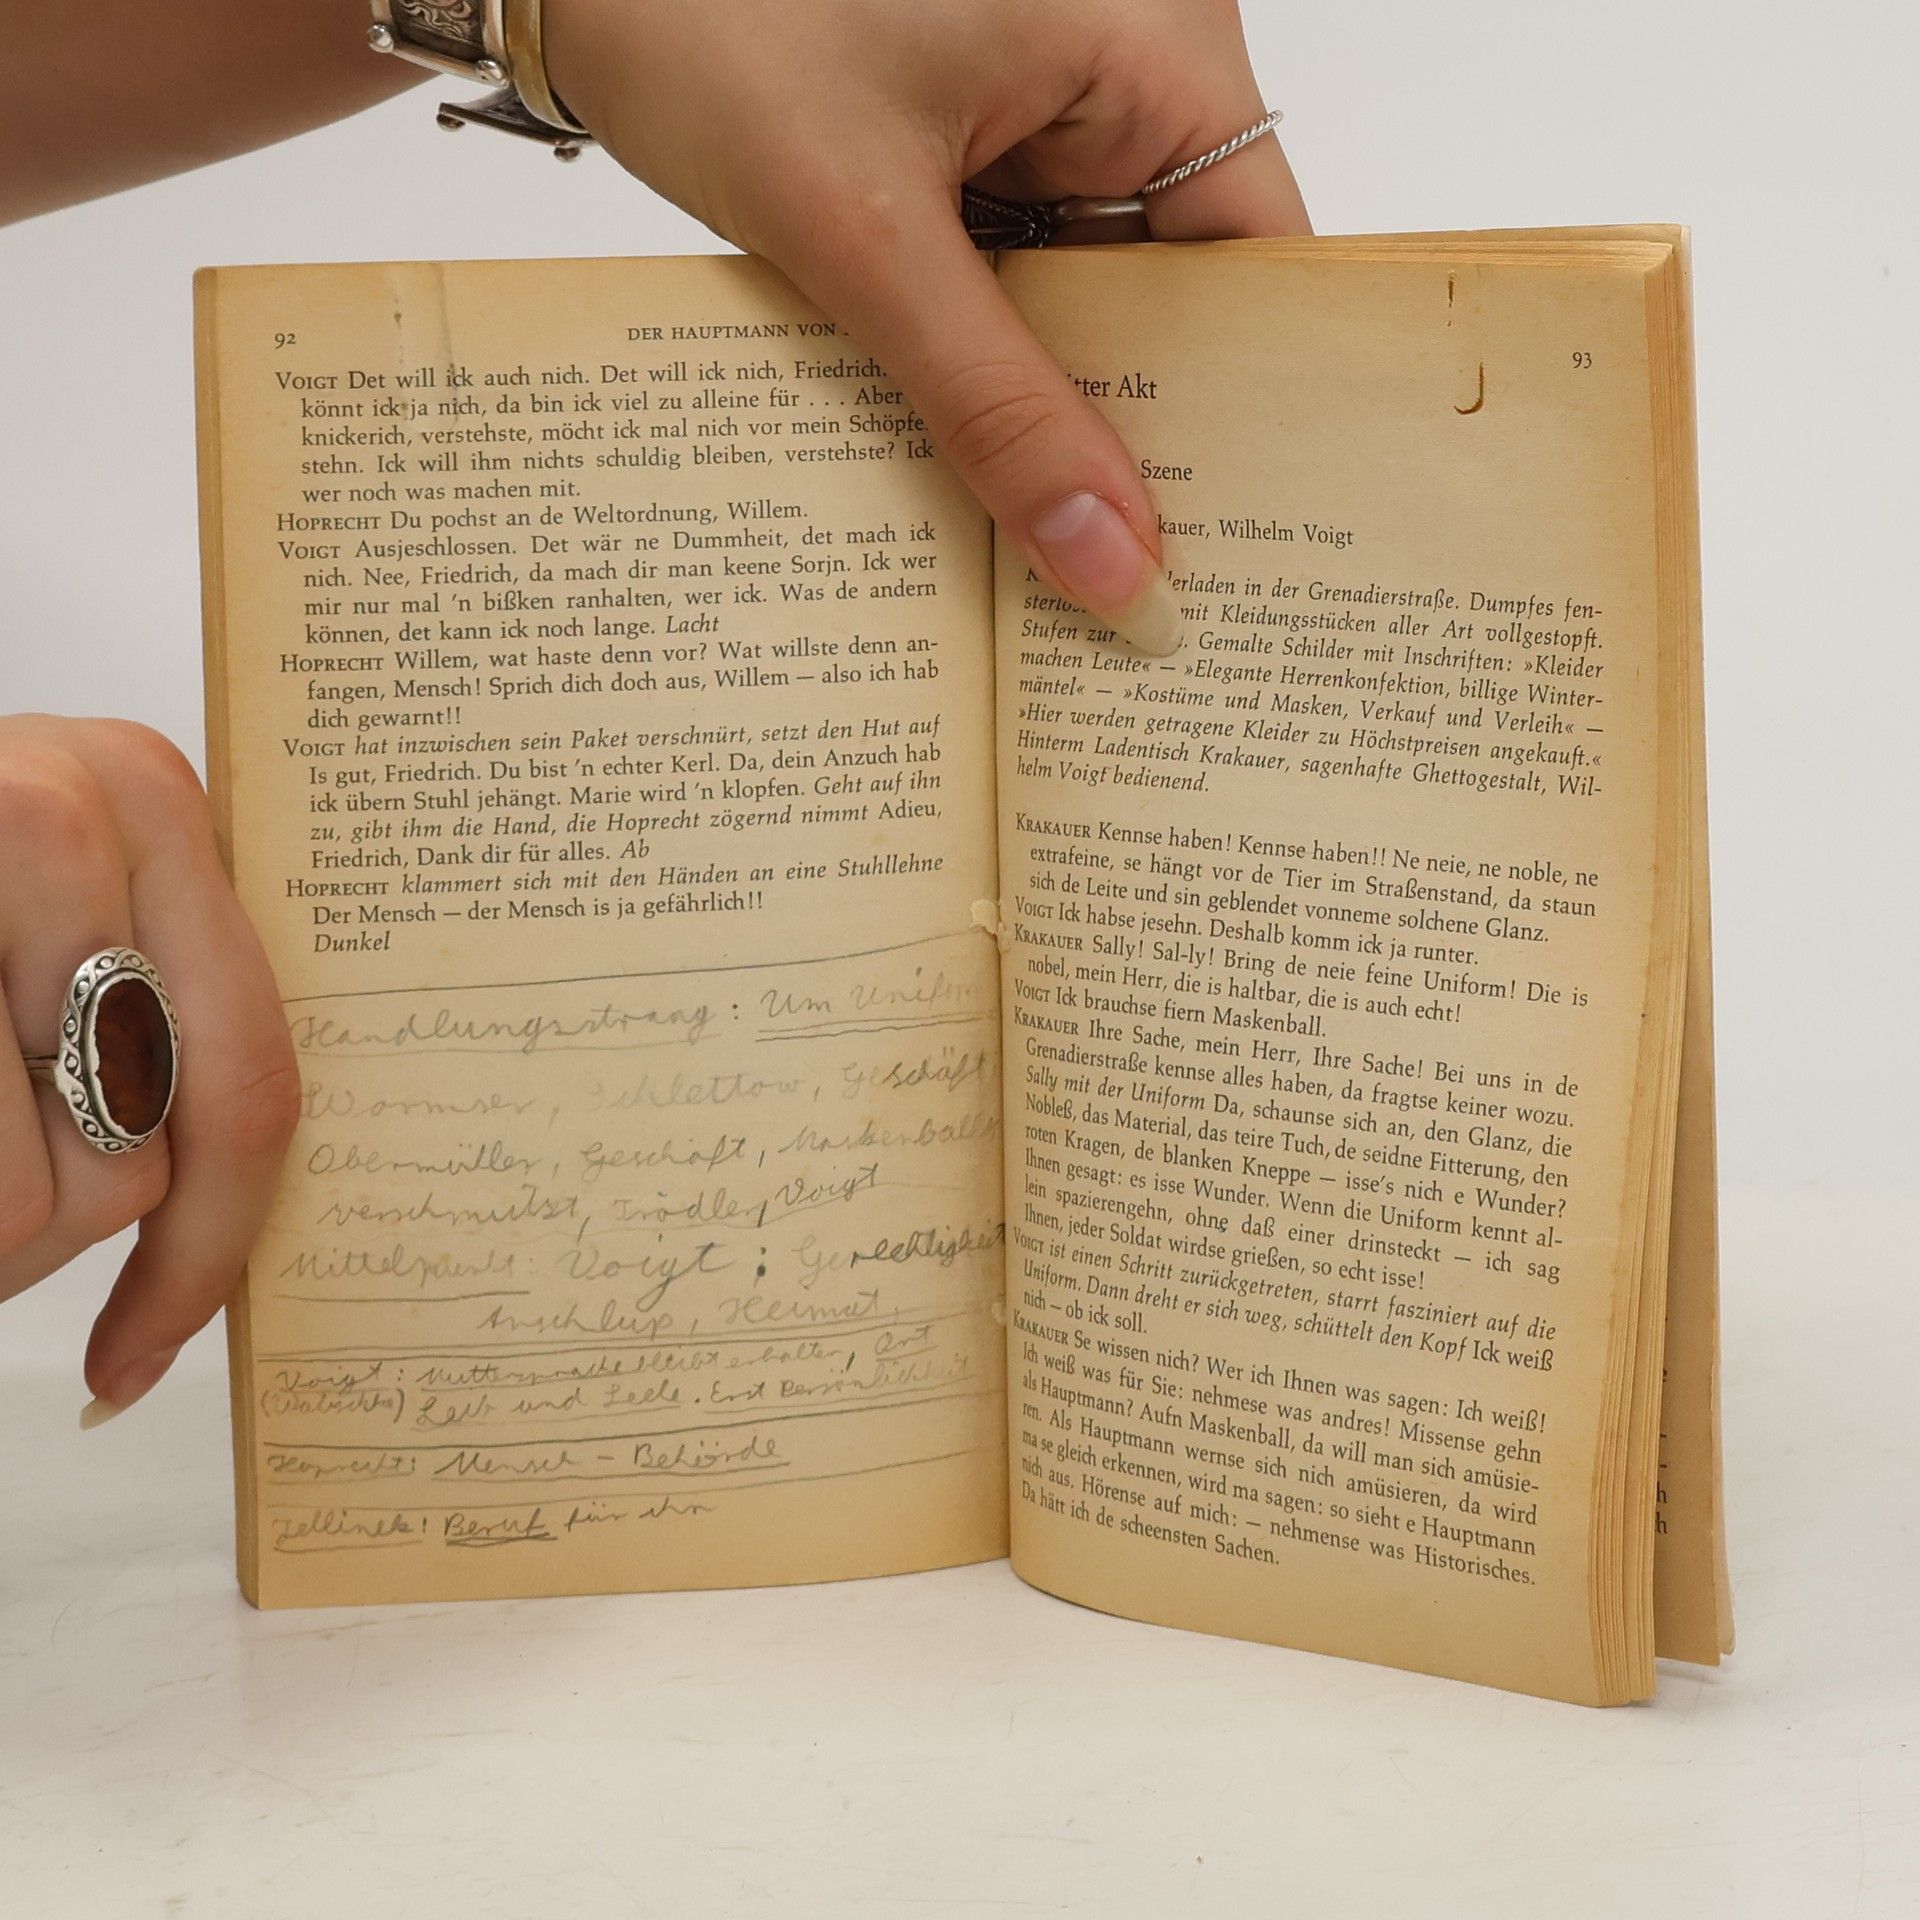 92
DER HAUPTMANN VON
VOIGT Det will ick auch nich. Det will ick nich, Friedrich.
könnt ick ja nich, da bin ick viel zu alleine für . . . Aber
knickerich, verstehste, möcht ick mal nich vor mein Schöpfe
stehn. Ick will ihm nichts schuldig bleiben, verstehste? Ick
wer noch was machen mit.
HOPRECHT Du pochst an de Weltordnung, Willem.
VOIGT Ausjeschlossen. Det wär ne Dummheit, det mach ick
nich. Nee, Friedrich, da mach dir man keene Sorjn. Ick wer
mir nur mal 'n bißken ranhalten, wer ick. Was de andern
können, det kann ick noch lange. Lacht
HOPRECHT Willem, wat haste denn vor? Wat willste denn an-
fangen, Mensch! Sprich dich doch aus, Willem — also ich hab
dich gewarnt!!
VOIGT hat inzwischen sein Paket verschnürt, setzt den Hut auf
Is gut, Friedrich. Du bist 'n echter Kerl. Da, dein Anzuch hab
ick übern Stuhl jehängt. Marie wird 'n klopfen. Geht auf ihn
zu, gibt ihm die Hand, die Hoprecht zögernd nimmt Adieu,
Friedrich, Dank dir für alles. Ab
HOPRECHT klammert sich mit den Händen an eine Stuhllehne
Der Mensch — der Mensch is ja gefährlich!!
Dunkel
Handlungsstrang : Um Uniform
Wormser, Schlettow, Geschäft
Obermüller, Geschäft, Maskenball
verschmutzt, Trödler, Voigt
Mittelpunkt: Voigt : Gerechtigkeit
Anschluß, Heimat,
Voigt : Muttersprache bleibt erhalten, Ort
Leib und Seele. Erst Persönlichkeit
Hoprecht: Mensch – Behörde
Jellinek! Beruf für ihn
93
tter Akt
Szene
kauer, Wilhelm Voigt
derladen in der Grenadierstraße. Dumpfes fen-
mit Kleidungsstücken aller Art vollgestopft.
Stufen zur Gemalte Schilder mit Inschriften: »Kleider
machen Leute« — »Elegante Herrenkonfektion, billige Winter-
mäntel« — »Kostüme und Masken, Verkauf und Verleih« —
»Hier werden getragene Kleider zu Höchstpreisen angekauft.«
Hinterm Ladentisch Krakauer, sagenhafte Ghettogestalt, Wil-
helm Voigt bedienend.
KRAKAUER Kennse haben! Kennse haben!! Ne neie, ne noble, ne
extrafeine, se hängt vor de Tier im Straßenstand, da staun
sich de Leite und sin geblendet vonneme solchene Glanz.
VOIGT Ick habse jesehn. Deshalb komm ick ja runter.
KRAKAUER Sally! Sal-ly! Bring de neie feine Uniform! Die is
nobel, mein Herr, die is haltbar, die is auch echt!
VOIGT Ick brauchse fiern Maskenball.
KRAKAUER Ihre Sache, mein Herr, Ihre Sache! Bei uns in de
Grenadierstraße kennse alles haben, da fragtse keiner wozu.
Sally mit der Uniform Da, schaunse sich an, den Glanz, die
Nobleß, das Material, das teire Tuch, de seidne Fitterung, den
roten Kragen, de blanken Kneppe — isse's nich e Wunder?
Ihnen gesagt: es isse Wunder. Wenn die Uniform kennt al-
lein spazierengehn, ohne daß einer drinsteckt — ich sag
Ihnen, jeder Soldat wirdse grießen, so echt isse!
VOIGT ist einen Schritt zurückgetreten, starrt fasziniert auf die
Uniform. Dann dreht er sich weg, schüttelt den Kopf Ick weiß
nich — ob ick soll.
KRAKAUER Se wissen nich? Wer ich Ihnen was sagen: Ich weiß!
Ich weiß was für Sie: nehmese was andres! Missense gehn
als Hauptmann? Aufn Maskenball, da will man sich amüsie-
ren. Als Hauptmann wernse sich nich amüsieren, da wird
ma se gleich erkennen, wird ma sagen: so sieht e Hauptmann
nich aus. Hörense auf mich: — nehmense was Historisches.
Da hätt ich de scheensten Sachen.